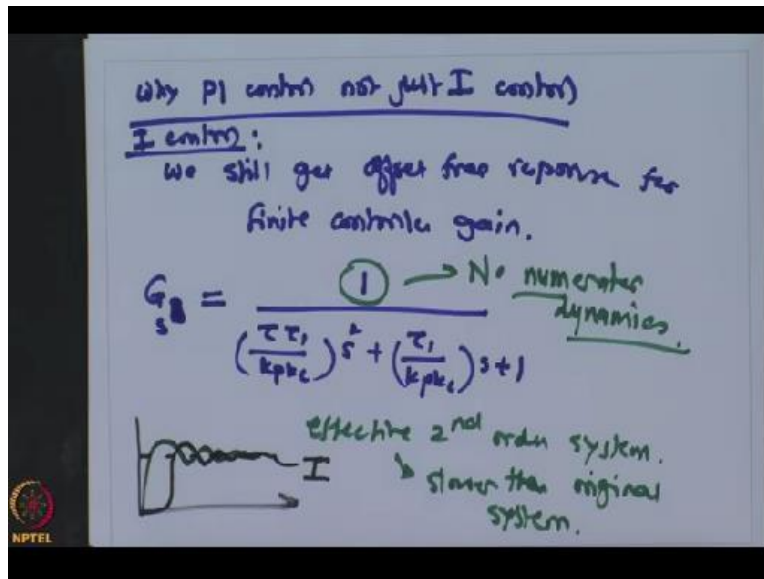 Why PI control not just I control
I control:
We still get offset free reponse for
finite controller gain.
G_s = 1 / ((ττ_I / k_p k_c) s² + (τ_I / k_p k_c) s + 1)
→ No numerator
dynamics.
effective 2nd order system.
↳ slower than original
system.
I
NPTEL